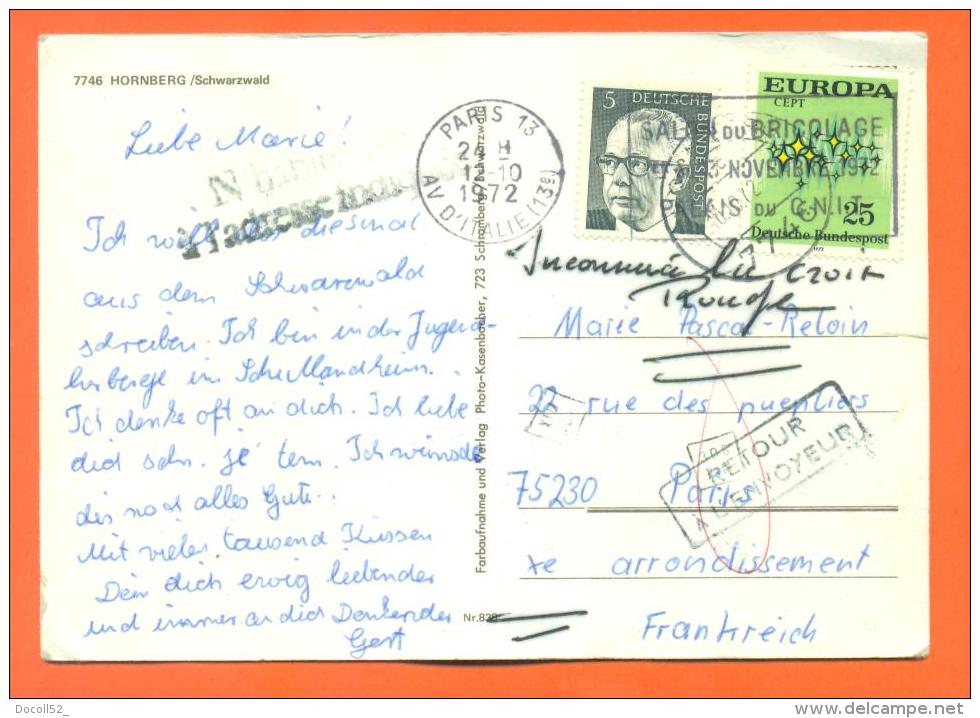 7746 HORNBERG /Schwarzwald
Liebe Marie!
Ich will dir diesmal
aus dem Schwarzwald
schreiben. Ich bin in der Jugend-
herberge in
Ich denke oft an dich. Ich liebe
dich sehr. Je t'em. Ich wünsche
dir noch alles Gute..
Mit vielen tausend Küssen
Dein dich ewig liebender
und immer an dich Denkender
Gert
N'habite
à l'adresse indiquée
Farbaufnahme und Verlag Photo-Kasenbacher, 723 Schramberg/Schwarzwald
Nr. 828
PARIS 13
24 H
12-10
1972
AV D'ITALIE (13E)
5
DEUTSCHE
BUNDESPOST
EUROPA
CEPT
25
Deutsche Bundespost
1972
SALON DU BRICOLAGE
NOVEMBRE 1972
PALAIS DU C.N.I.T.
Inconnu à la Croix
Rouge
Marie Pascal-Reloin
27 rue des puepliers
75230 Paris
xe arrondissement
Frankreich
RETOUR
A L'ENVOYEUR
Docoll52_
www.delcampe.net